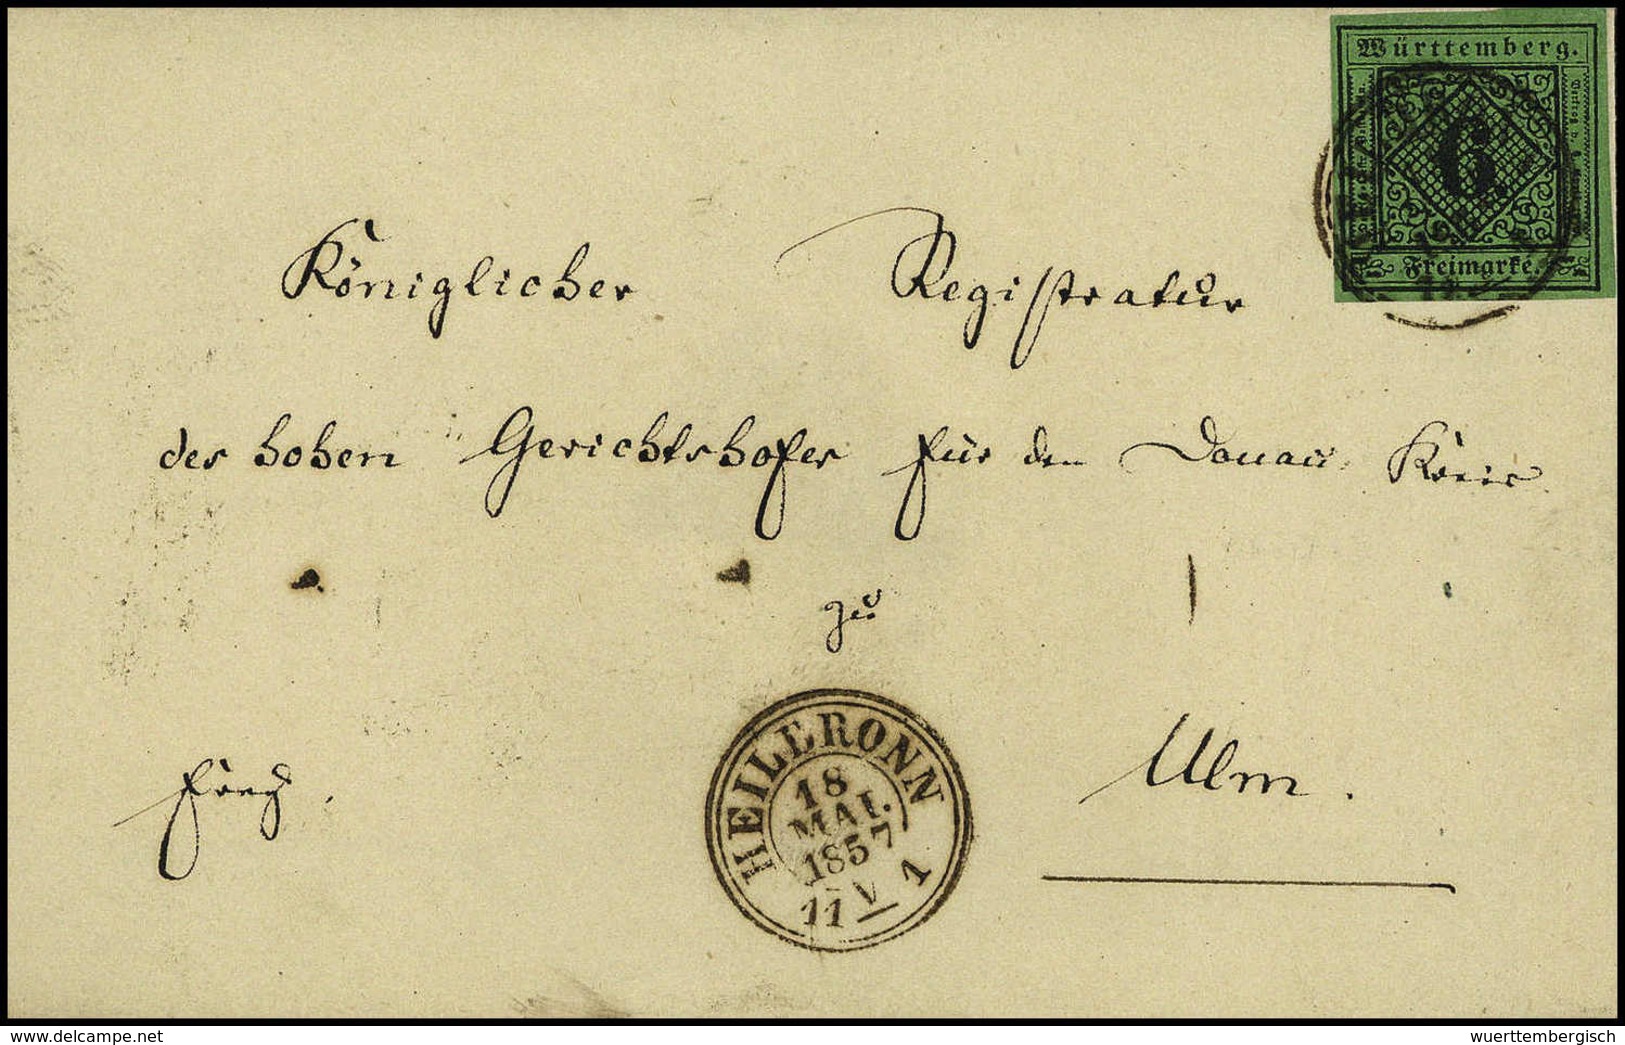 Württemberg.
6
Freimarke.
Königlicher Registratur
des hohen Gerichtshofes für den Donau Kreis
zu
Ulm.
HEILBRONN
18
MAI.
1857
11 V 1
delcampe.net
wuerttembergisch